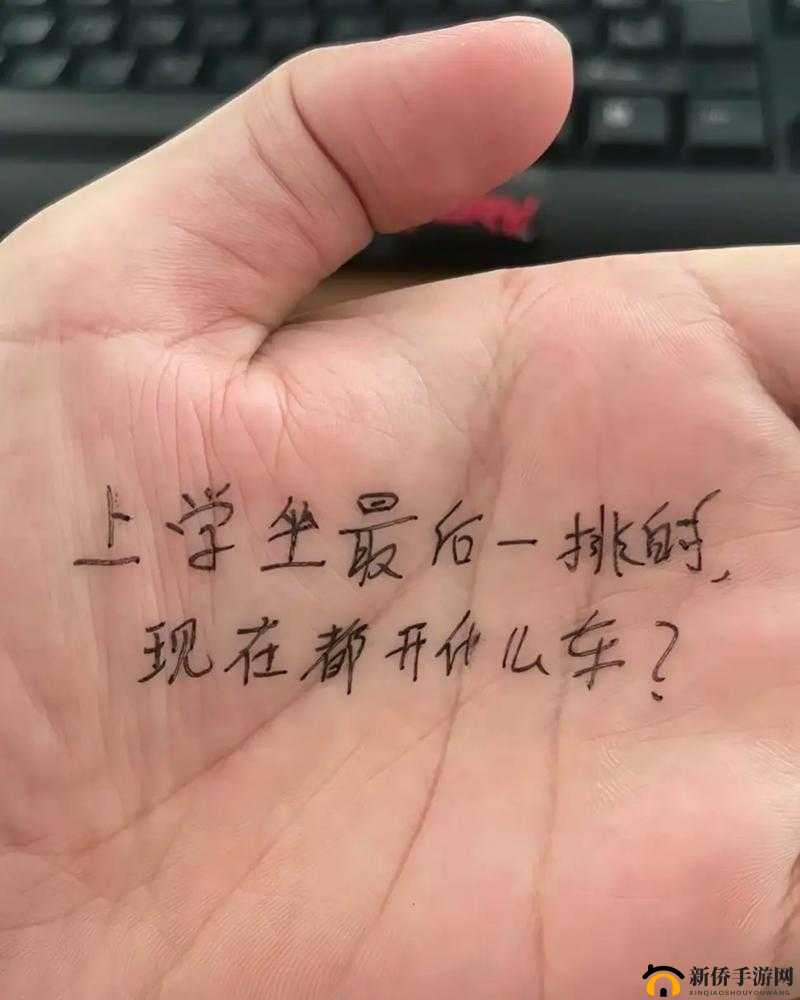 上学坐最后一排的,
现在都开什么车?
新侨手游网
XINQIAOSHOUYOUWANG